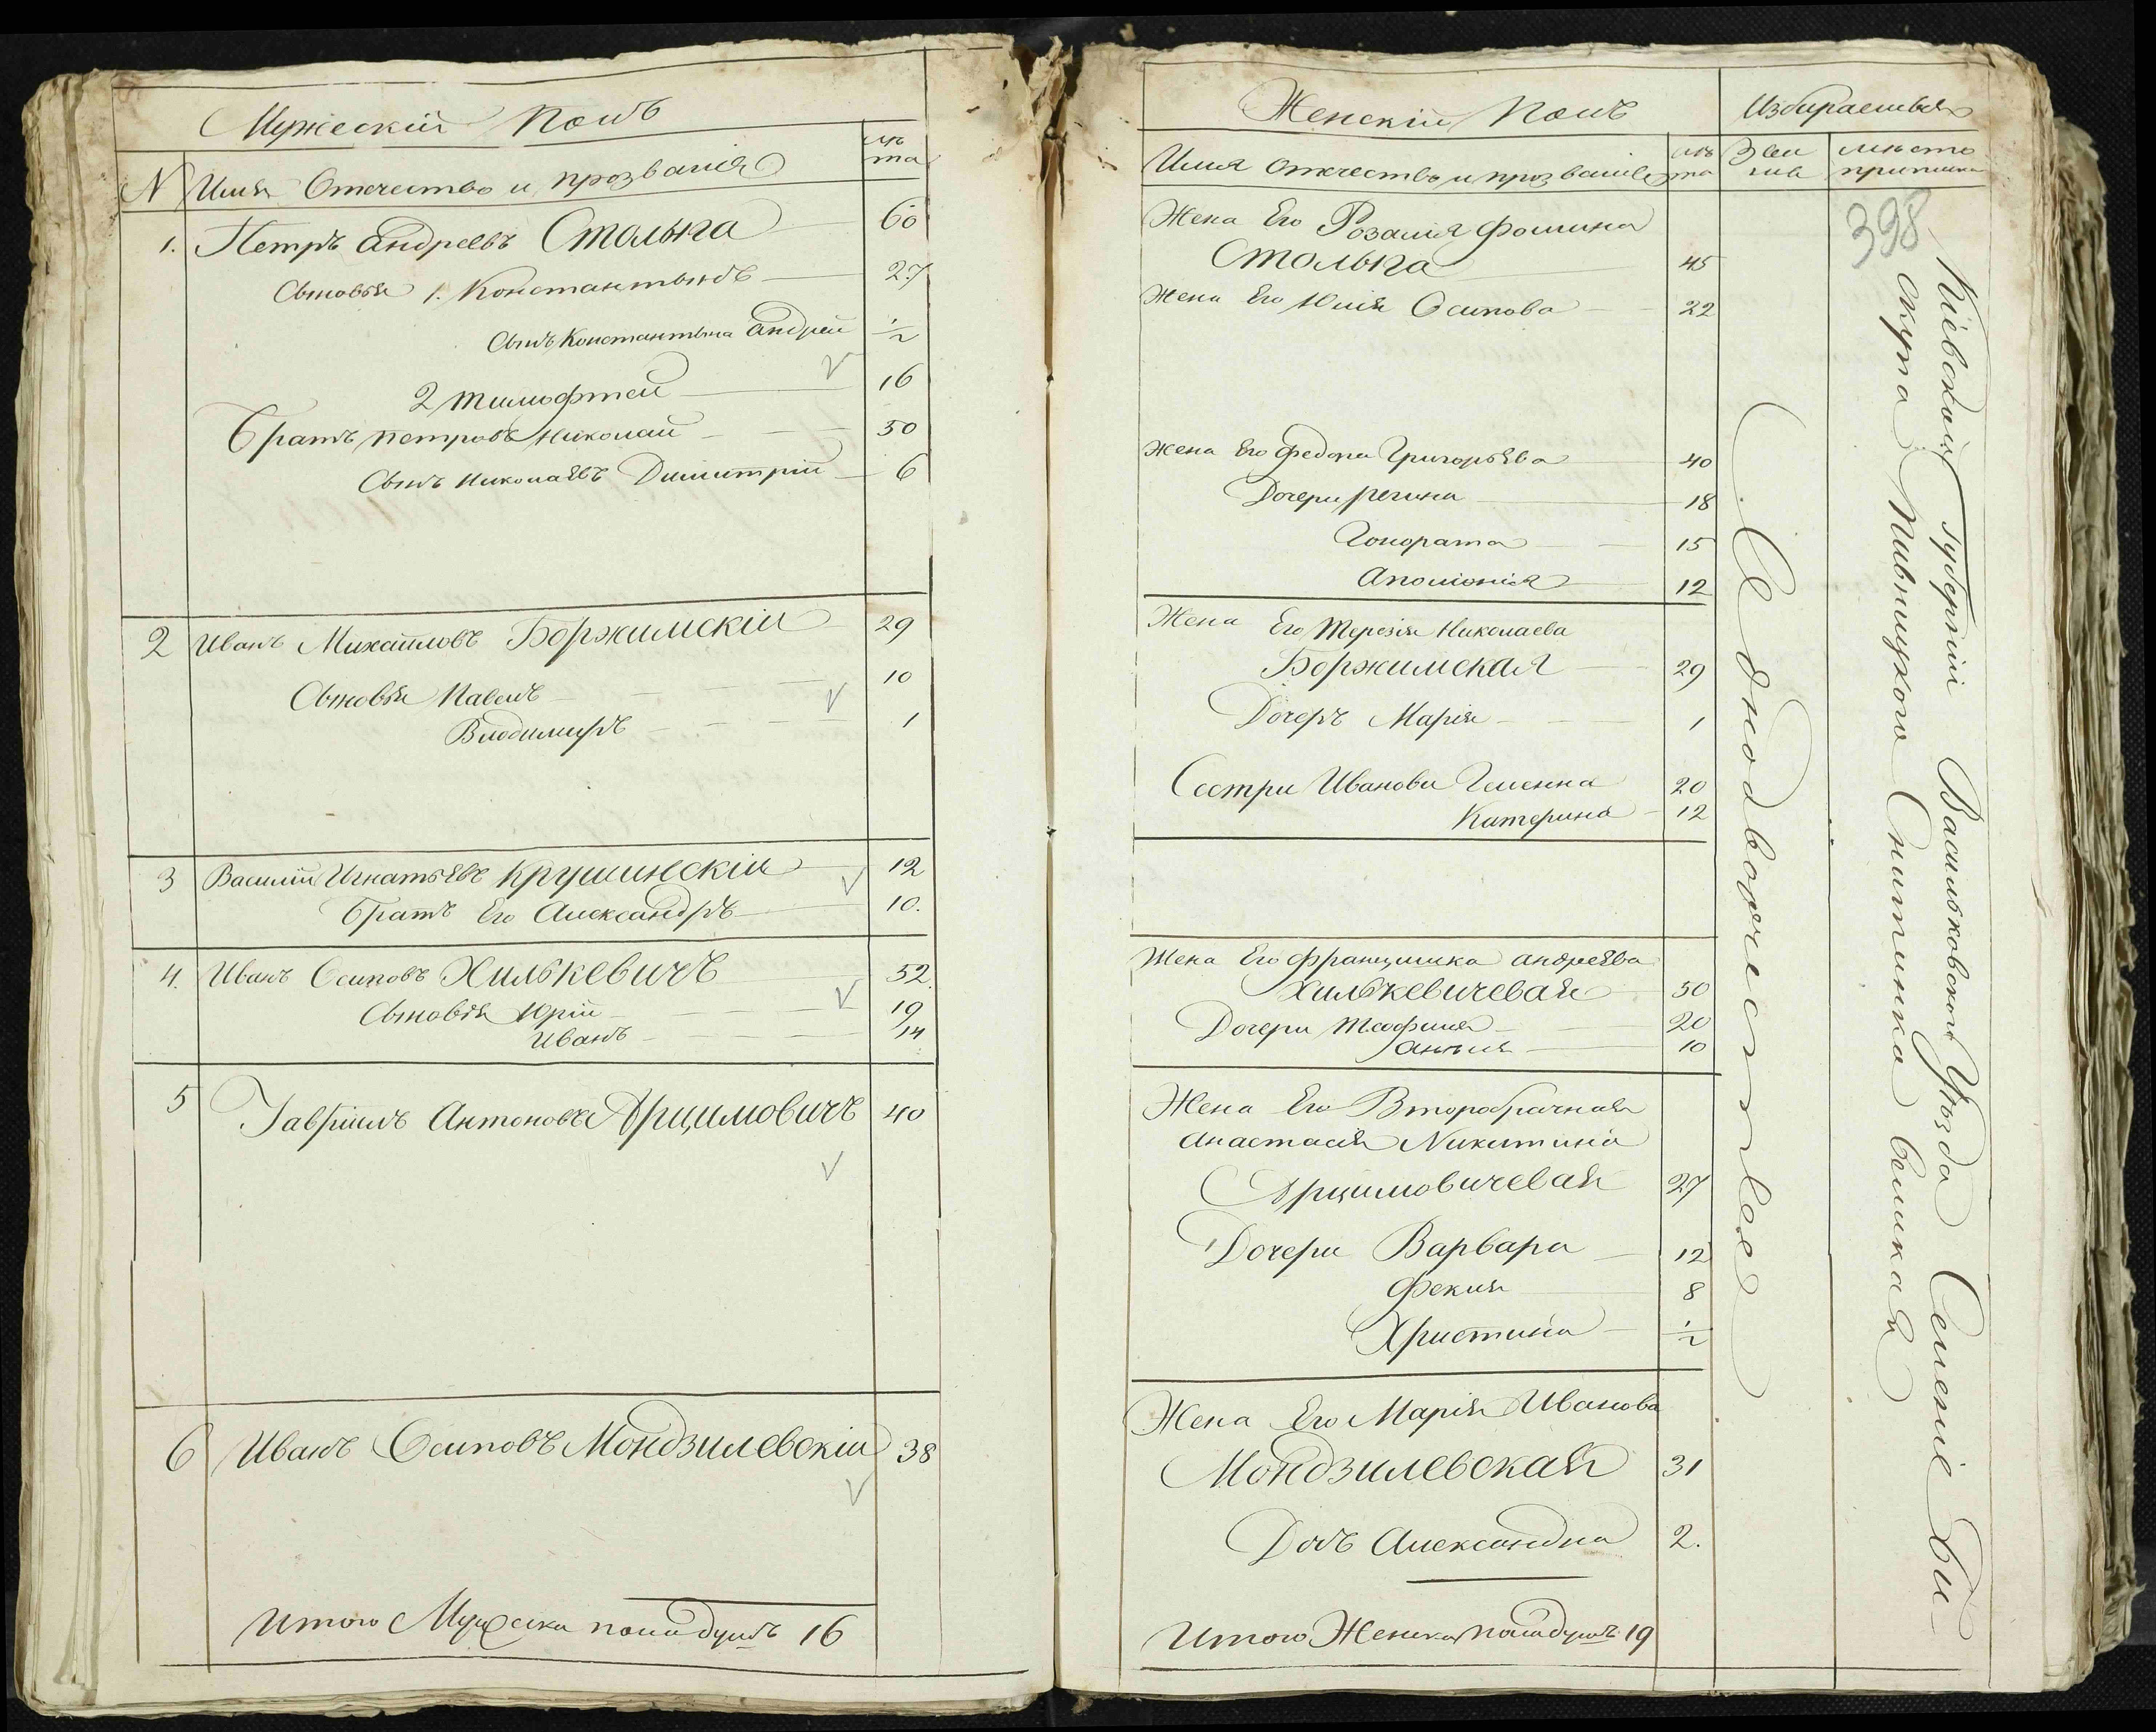 Мужескій Полъ
лѣ
та
N Имя Отчество и прозванія
1. Петръ Андреевъ Столыга 60
Сыновья 1. Константынъ 27
Сынъ Константына Андрей ½
2 Тимофтей 16
Братъ Петровъ Николай 50
Сынъ Николаевъ Димитрій 6
2 Иванъ Михайловъ Боржимскій 29
Сыновья Павелъ 10
Влодимиръ 1
3 Василій Игнатьевъ Крушинскій 12
Братъ Его Александръ 10.
4. Иванъ Осиповъ Хилькевичъ 52.
Сыновья Юрій 19
Иванъ 14
5 Гавріилъ Антоновъ Арцимовичъ 40
6 Иванъ Осиповъ Мондзилевскій 38
Итого Мужеска пола душъ 16
Женскій Полъ
Избираемыя
Имя Отчество и прозваніе
лѣ
та
Зва
ніе
мѣсто
приписки
398
Жена Его Розалія Фомина
Столыга 45
Жена Его Юлія Осипова 22
Жена Его Федора Григорьева 40
Дочери Регина 18
Гонората 15
Аполіонія 12
Жена Его Терезія Николаева
Боржимская 29
Дочеръ Марія 1
Сестри Иванови Гелена 20
Катерина 12
Жена Его Францишка Андреева
Хилькевичевая 50
Дочери Теофилия 20
Анеля 10
Жена Его Второбрачная
Анастасія Никитина
Арцимовичевая 27
Дочери Варвара 12
Фекия 8
Христина ½
Жена Его Марія Иванова
Мондзилевская 31
Дочъ Александра 2.
Итого Женска пола душъ 19
Однодворческое
Кіевской Губерніи Васильковского Уѣзда Селеніе Сни
скута Пивницкого Снитинка Великая